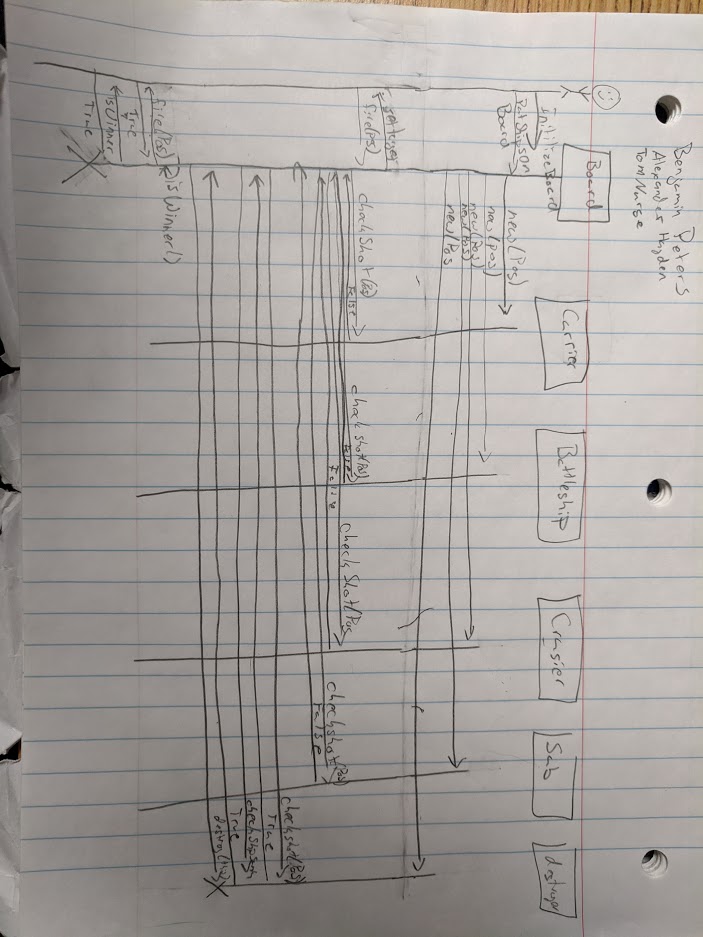 Benjamin Peters
Alexander Hayden
Tom Nurse
Board
Carrier
Battleship
Crusier
Sub
destroyer
Initilize Board
Put Ships on
Board
new(Pos)
new(Pos)
new(Pos)
new(Pos)
new(Pos
fire(Pos)
checkShot(Pos)
False
checkshot(Pos)
False
checkShot(Pos
False
checkshot(Pos)
False
checkshot(Pos)
True
True
destroy(
fire(Pos)
isWinner()
True
isWinner
True